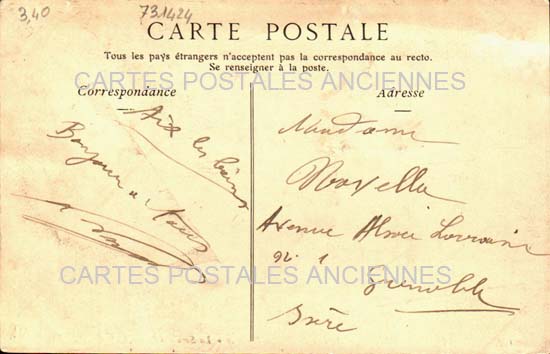 3,40
731424
CARTE POSTALE
Tous les pays étrangers n'acceptent pas la correspondance au recto.
Se renseigner à la poste.
CARTES POSTALES ANCIENNES
Correspondance
Aix les bains
Bonjour a tous
Adresse
Madame
Novella
Avenue Alsace Lorraine
Grenoble
Isère
CARTES POSTALES ANCIENNES